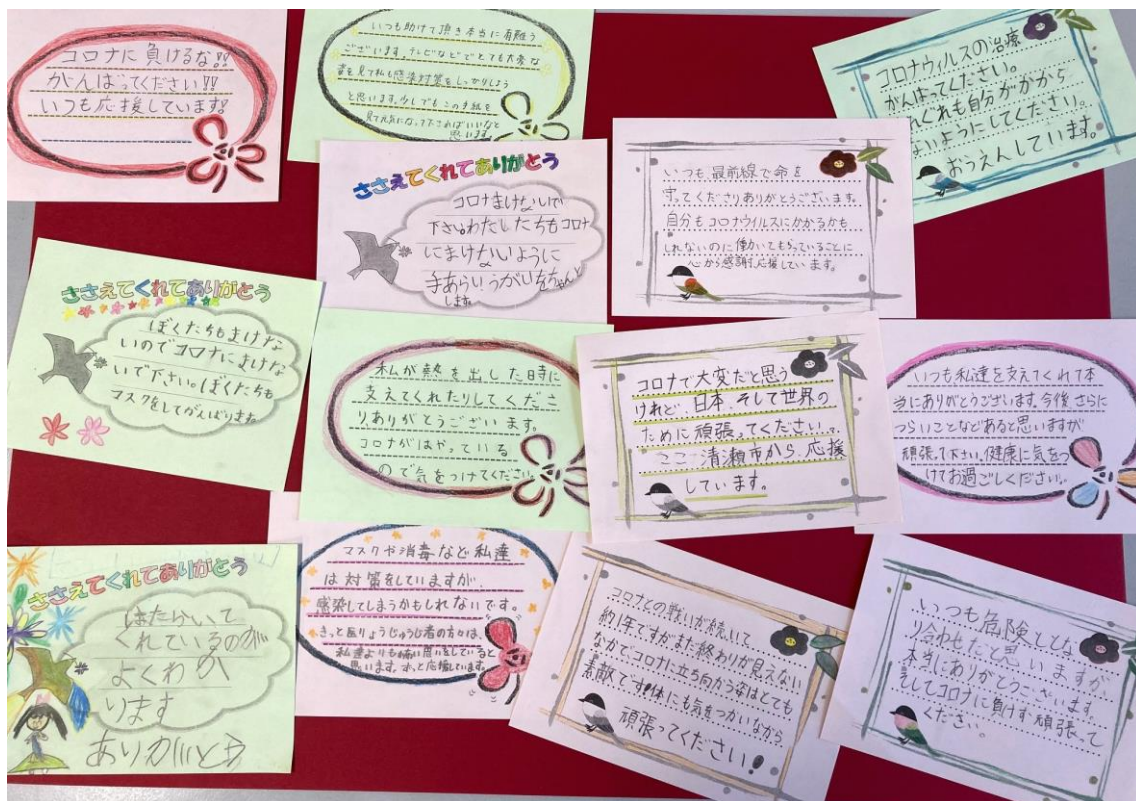 コロナに負けるな!!
がんばってください!!
いつも応援しています!
いつも助けて頂き本当に有難う
ございます。テレビなどでとても大変な
姿を見て私も感染対策をしっかりしよう
と思います。少しでもこの手紙を
見て元気になって下さればいいなと
思います。
コロナウィルスの治療
がんばってください。
くれぐれも自分がかから
ないようにしてください。
おうえんしています。
ささえてくれてありがとう
コロナまけないで
下さい。わたしたちもコロナ
にまけないように
手あらいうがいをちゃんと
します。
いつも最前線で命を
守ってくださりありがとうございます。
自分もコロナウイルスにかかるかも
しれないのに働いてもらっていることに
心から感謝、応援しています。
ささえてくれてありがとう
ぼくたちもまけな
いのでコロナにまけな
いで下さい。ぼくたちも
マスクをしてがんばりますね
私が熱を出した時に
支えてくれたりしてくださ
りありがとうございます。
コロナがはやっている
ので気をつけてください
コロナで大変だと思う
けれど、日本、そして世界の
ために頑張ってください!
ここ清瀬市から応援
しています。
いつも私達を支えてくれて本
当にありがとうございます。今後さらに
つらいことなどあると思いますが
頑張って下さい。健康に気をつ
けてお過ごしください。
ささえてくれてありがとう
はたらいて
くれているのが
よくわか
ります
ありがとう
マスクや消毒など私達
は対策をしていますが、
感染してしまうかもしれないです。
きっと医りょうじゅうじ者の方々は、
私達よりも怖い思いをしていると
思います。ずっと応援しています。
コロナとの戦いが続いて、
約1年ですがまだ終わりが見えない
なかでコロナに立ち向かう姿はとても
素敵です!体にも気をつかいながら
頑張ってください!
いつも危険ととな
り合わせだと思いますが、
本当にありがとうございます。
そしてコロナに負けず頑張って
ください。